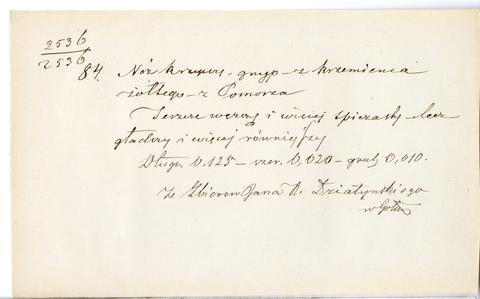 2536
2536
84. Nóż krzywy, grup z krzemienia
żółtego z Pomorza
Jeszcze węższy i więcej śpiczasty lecz
gładszy i więcej równiejszy
Długi 0,125 – szer. 0,020 – grub. 0,010.
Ze Zbiorów Jana K. Działyńskiego
w